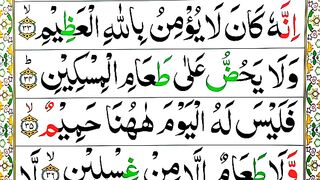 اِنَّهٗ كَانَ لَا يُؤْمِنُ بِاللّٰهِ الْعَظِيْمِۙ ۝۳۳
وَلَا يَحُضُّ عَلٰى طَعَامِ الْمِسْكِيْنِؕ ۝۳۴
فَلَيْسَ لَهُ الْيَوْمَ هٰهُنَا حَمِيْمٌۙ ۝۳۵
وَّلَا طَعَامٌ اِلَّا مِنْ غِسْلِيْنٍۙ ۝۳۶ لَّا